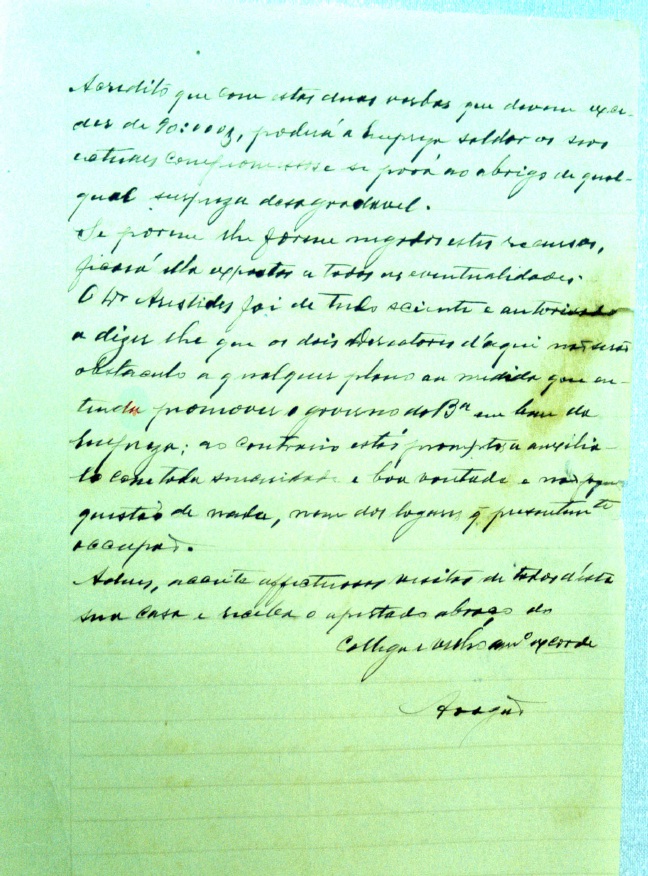 Acredito que com estas duas verbas que devem exce-
der de 90:000$, poderá a Empreza saldar os seos
actuaes compromissos e se porá ao abrigo de qual-
quer surpreza desagradavel.
Se porem lhe forem negados estes recursos,
ficará ella exposta a todas as eventualidades.
O Dr Aristides foi de tudo sciente e autorisado
a dizer lhe que os dois Directores d'aqui não serão
obstaculo a qualquer plano ou medida que en-
tenda promover o governo da Ba em bem da
Empreza; ao contrario estão promptos a auxilia-
lo com toda sinceridade e bôa vontade e não fazem
questão de nada, nem dos logares q presentemte
occupão.
Adeus, acceite affectuosas visitas de todos d'esta
sua casa e receba o apertado abraço do
Collega e velho amo excorde
Aragão